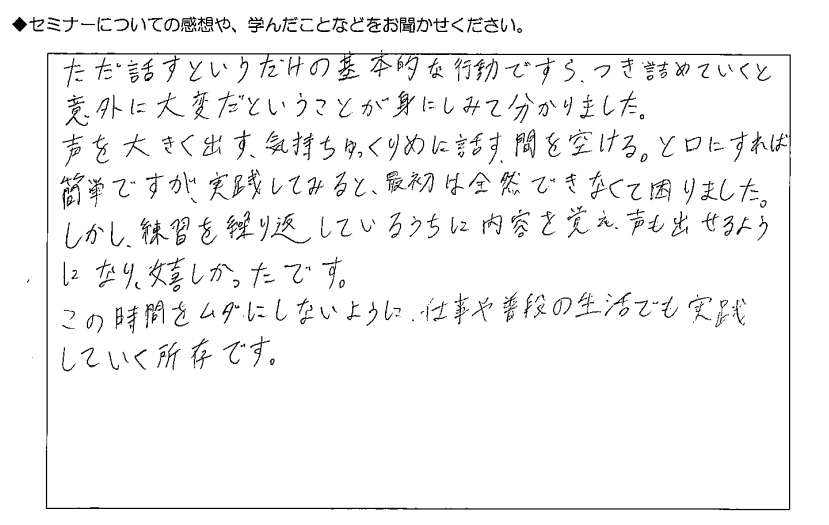 ◆セミナーについての感想や、学んだことなどをお聞かせください。
ただ話すというだけの基本的な行動ですら、つき詰めていくと
意外に大変だということが身にしみて分かりました。
声を大きく出す、気持ちゆっくりめに話す、間を空ける。と口にすれば
簡単ですが、実践してみると、最初は全然できなくて困りました。
しかし、練習を繰り返しているうちに内容を覚え、声も出せるよう
になり、嬉しかったです。
この時間をムダにしないように、仕事や普段の生活でも実践
していく所存です。